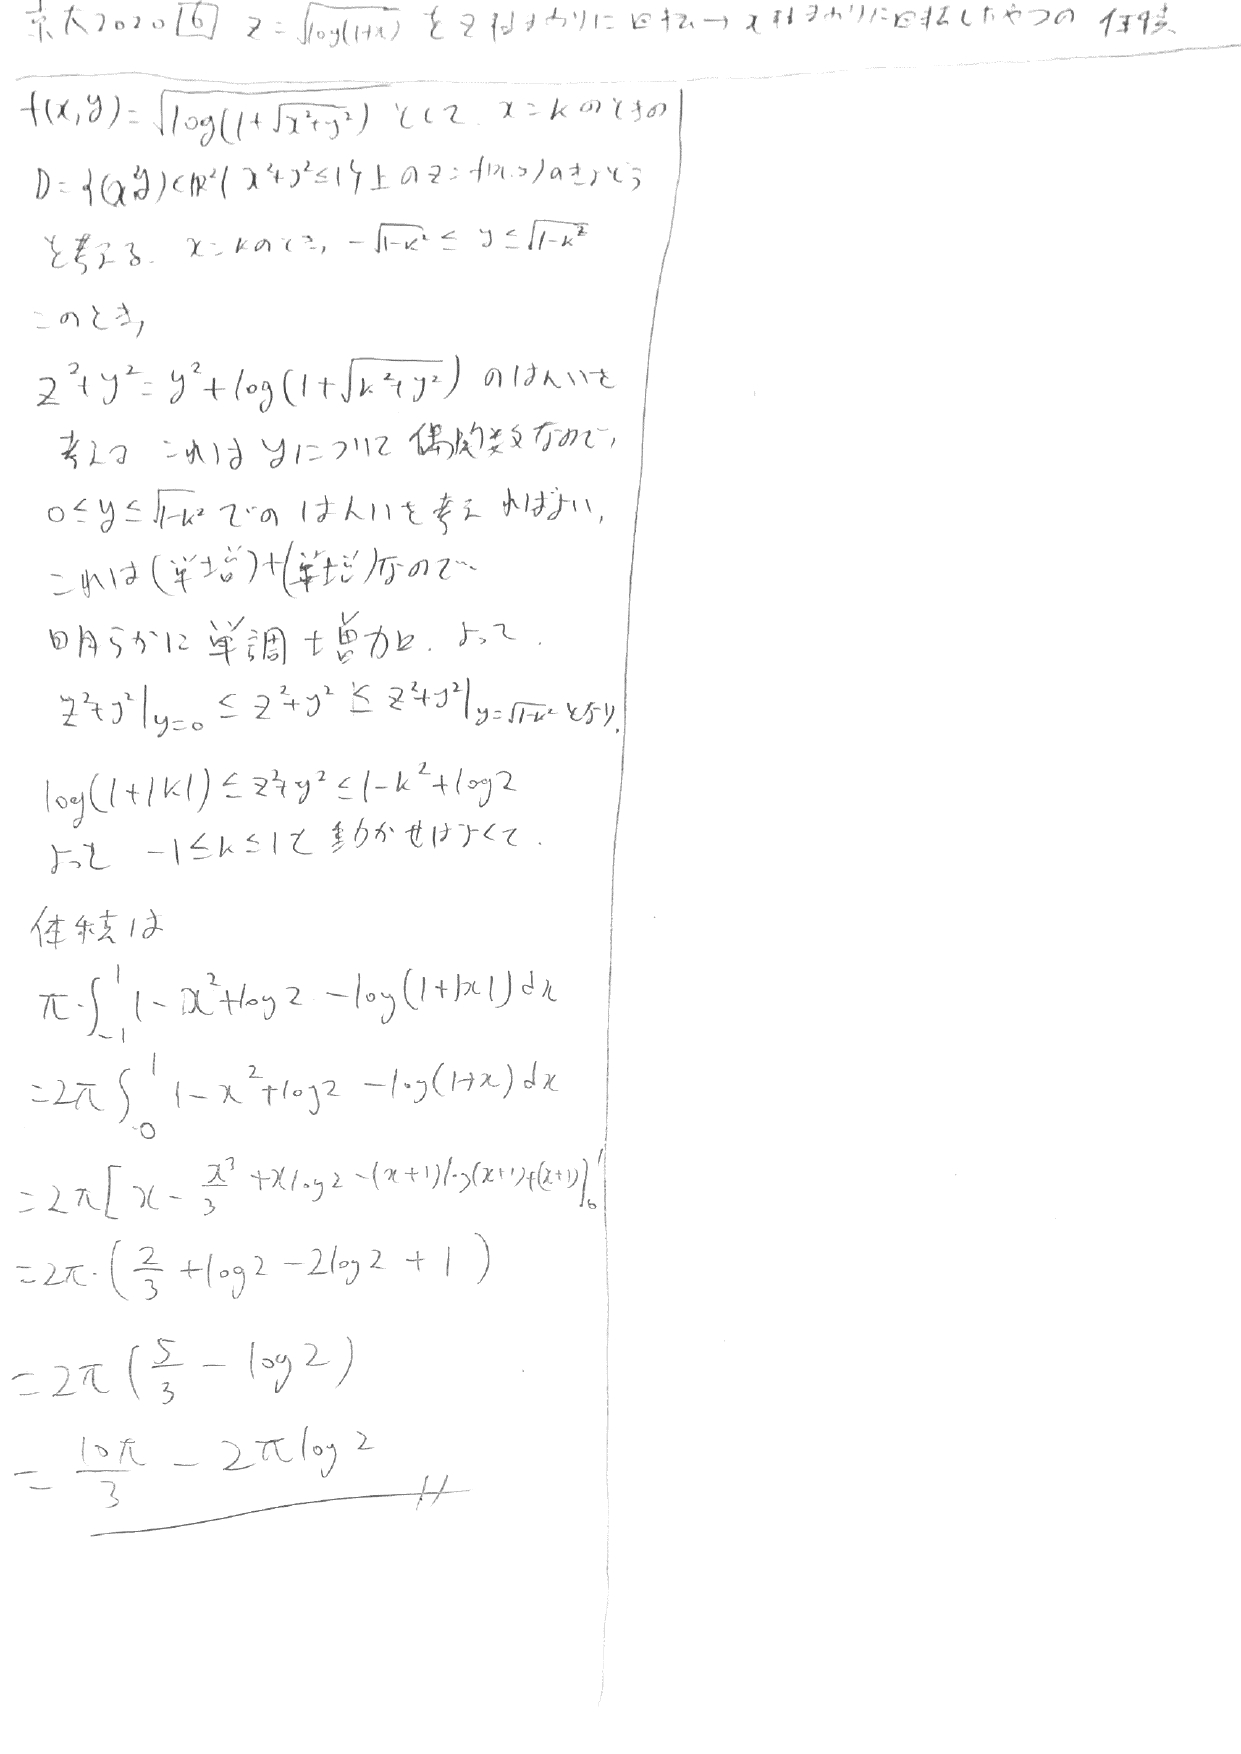 京大2020 6 z=√log(1+x) をz軸まわりに回転→x軸まわりに回転したやつの体積
f(x,y)=√log(1+√x²+y²) として x=kのときの
D={(x,y)∈ℝ²| x²+y²≤1}上のz=f(x,y)のきりくち
を考える. x=kのとき, -√1-k² ≤ y ≤ √1-k²
このとき,
z²+y²=y²+log(1+√k²+y²) のはんいを
考える これはyについて偶関数なので,
0≤y≤√1-k² でのはんいを考えればよい,
これは(単増)+(単増)なので
明らかに単調増加. よって.
z²+y²|y=0 ≤ z²+y² ≤ z²+y²|y=√1-k² となり,
log(1+|k|) ≤ z²+y² ≤ 1-k²+log2
よって -1≤k≤1で動かせばよくて.
体積は
π·∫₋₁¹ 1-x²+log2-log(1+|x|)dx
=2π∫₀¹ 1-x²+log2-log(1+x)dx
=2π[x-x³/3+xlog2-(x+1)log(x+1)+(x+1)]₀¹
=2π·(2/3+log2-2log2+1)
=2π(5/3-log2)
=10π/3-2πlog2